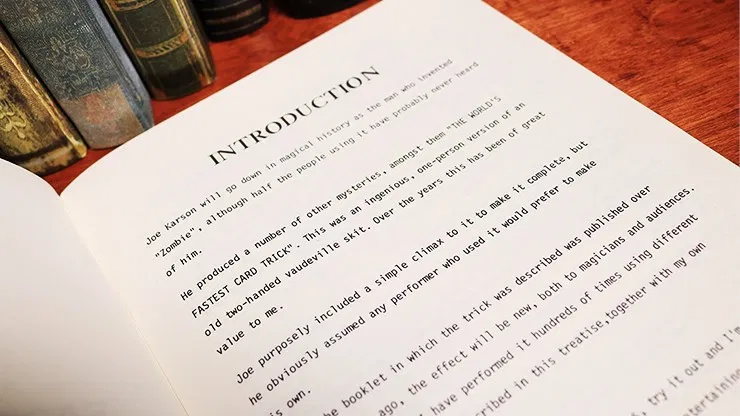 INTRODUCTION
Joe Karson will go down in magical history as the man who invented
"Zombie", although half the people using it have probably never heard
of him.
He produced a number of other mysteries, amongst them "THE WORLD'S
FASTEST CARD TRICK". This was an ingenious, one-person version of an
old two-handed vaudeville skit. Over the years this has been of great
value to me.
Joe purposely included a simple climax to it to make it complete, but
he obviously assumed any performer who used it would prefer to make
is own.
he booklet in which the trick was described was published over
ago, the effect will be new, both to magicians and audiences.
have performed it hundreds of times using different
scribed in this treatise, together with my own
, try it out and I'm